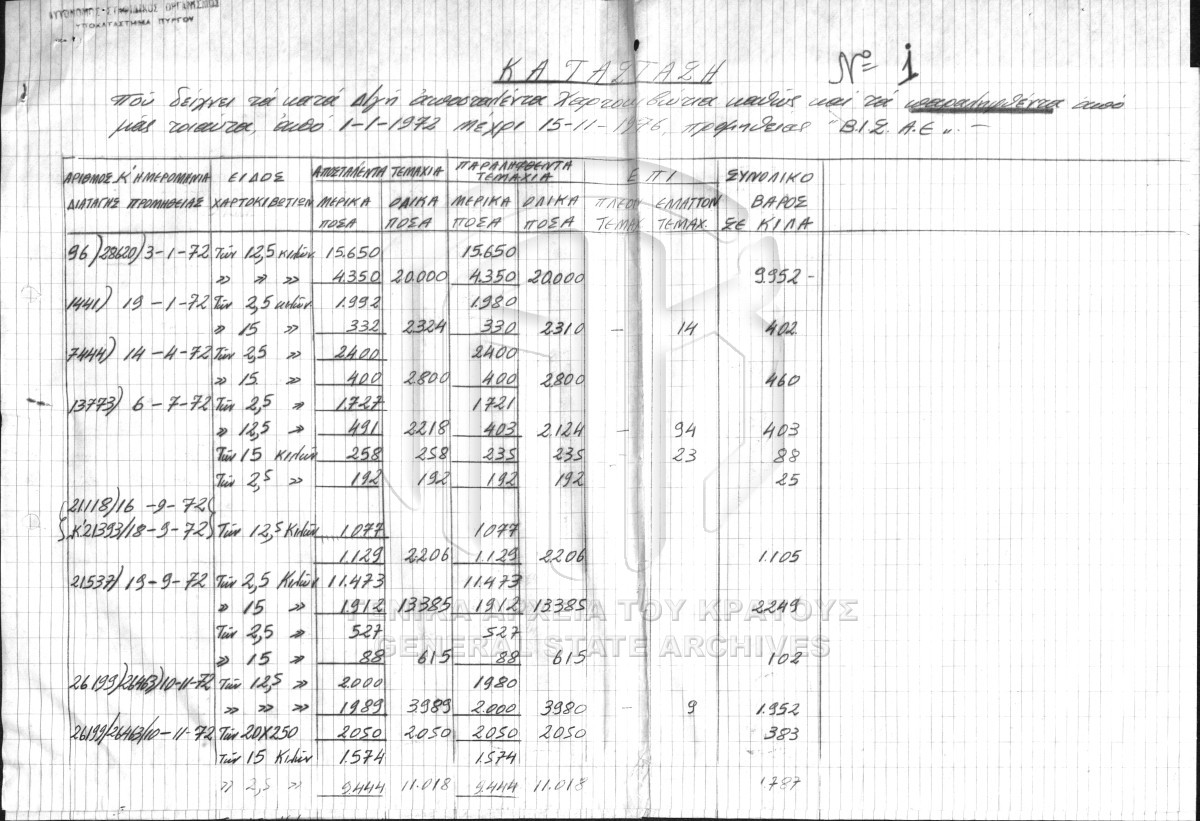 ΑΥΤΟΝΟΜΟΣ ΣΤΑΦΙΔΙΚΟΣ ΟΡΓΑΝΙΣΜΟΣ
ΥΠΟΚΑΤΑΣΤΗΜΑ ΠΥΡΓΟΥ
ΚΑΤΑΣΤΑΣΗ Nº 1
Ποὺ δείχνει τὰ κατὰ Δ/γὴ ἀποσταλέντα Χαρτοκιβώτια καθὼς καὶ τὰ παραληφθέντα ἀπό
μᾶς τοιαῦτα, ἀπὸ 1-1-1972 μέχρι 15-11-1976, προμηθείας "Β.Ι.Σ. Α.Ε". -
ΑΡΙΘΜΟΣ Κ' ΗΜΕΡΟΜΗΝΙΑ ΕΙΔΟΣ ΑΠΟΣΤΑΛΕΝΤΑ ΤΕΜΑΧΙΑ ΠΑΡΑΛΗΦΘΕΝΤΑ ΤΕΜΑΧΙΑ ΕΠΙ ΣΥΝΟΛΙΚΟ
ΔΙΑΤΑΓΗΣ ΠΡΟΜΗΘΕΙΑΣ ΧΑΡΤΟΚΙΒΩΤΙΩΝ ΜΕΡΙΚΑ ΟΛΙΚΑ ΜΕΡΙΚΑ ΟΛΙΚΑ ΠΛΕΟΝ ΕΛΛΑΤΤΟΝ ΒΑΡΟΣ
ΠΟΣΑ ΠΟΣΑ ΠΟΣΑ ΠΟΣΑ ΤΕΜΑΧ. ΤΕΜΑΧ. ΣΕ ΚΙΛΑ
96)28620)3-1-72 Τῶν 12,5 κιλῶν 15.650 15.650
» » » 4.350 20.000 4.350 20.000 9.952 -
1441) 19-1-72 Τῶν 2,5 κιλῶν 1.992 1.980
» 15 » 332 2324 330 2310 - 14 402
7444) 14-4-72 Τῶν 2,5 » 2400 2400
» 15 » 400 2.800 400 2.800 460
13773) 6-7-72 Τῶν 2,5 » 1.727 1721
» 12,5 » 491 2218 403 2.124 - 94 403
Τῶν 15 κιλῶν 258 258 235 235 - 23 88
Τῶν 2,5 » 192 192 192 192 25
21.118)16-9-72
κ'21393/18-9-72 Τῶν 12,5 Κιλῶν 1.077 1077
1.129 2.206 1.129 2.206 1.105
21.537) 19-9-72 Τῶν 2,5 Κιλῶν 11.473 11.473
» 15 » 1.912 13.385 1912 13.385 2249
Τῶν 2,5 » 527 527
» 15 » 88 615 88 615 102
26199)26463)10-11-72 Τῶν 12,5 » 2.000 1980
» » » 1989 3.989 2.000 3980 - 9 1.952
26199/26463/10-11-72 Τῶν 20Χ250 2050 2050 2050 2050 383
Τῶν 15 Κιλῶν 1.574 1.574
» 2,5 » 9.444 11.018 9.444 11.018 1787
ΓΕΝΙΚΑ ΑΡΧΕΙΑ ΤΟΥ ΚΡΑΤΟΥΣ
GENERAL STATE ARCHIVES